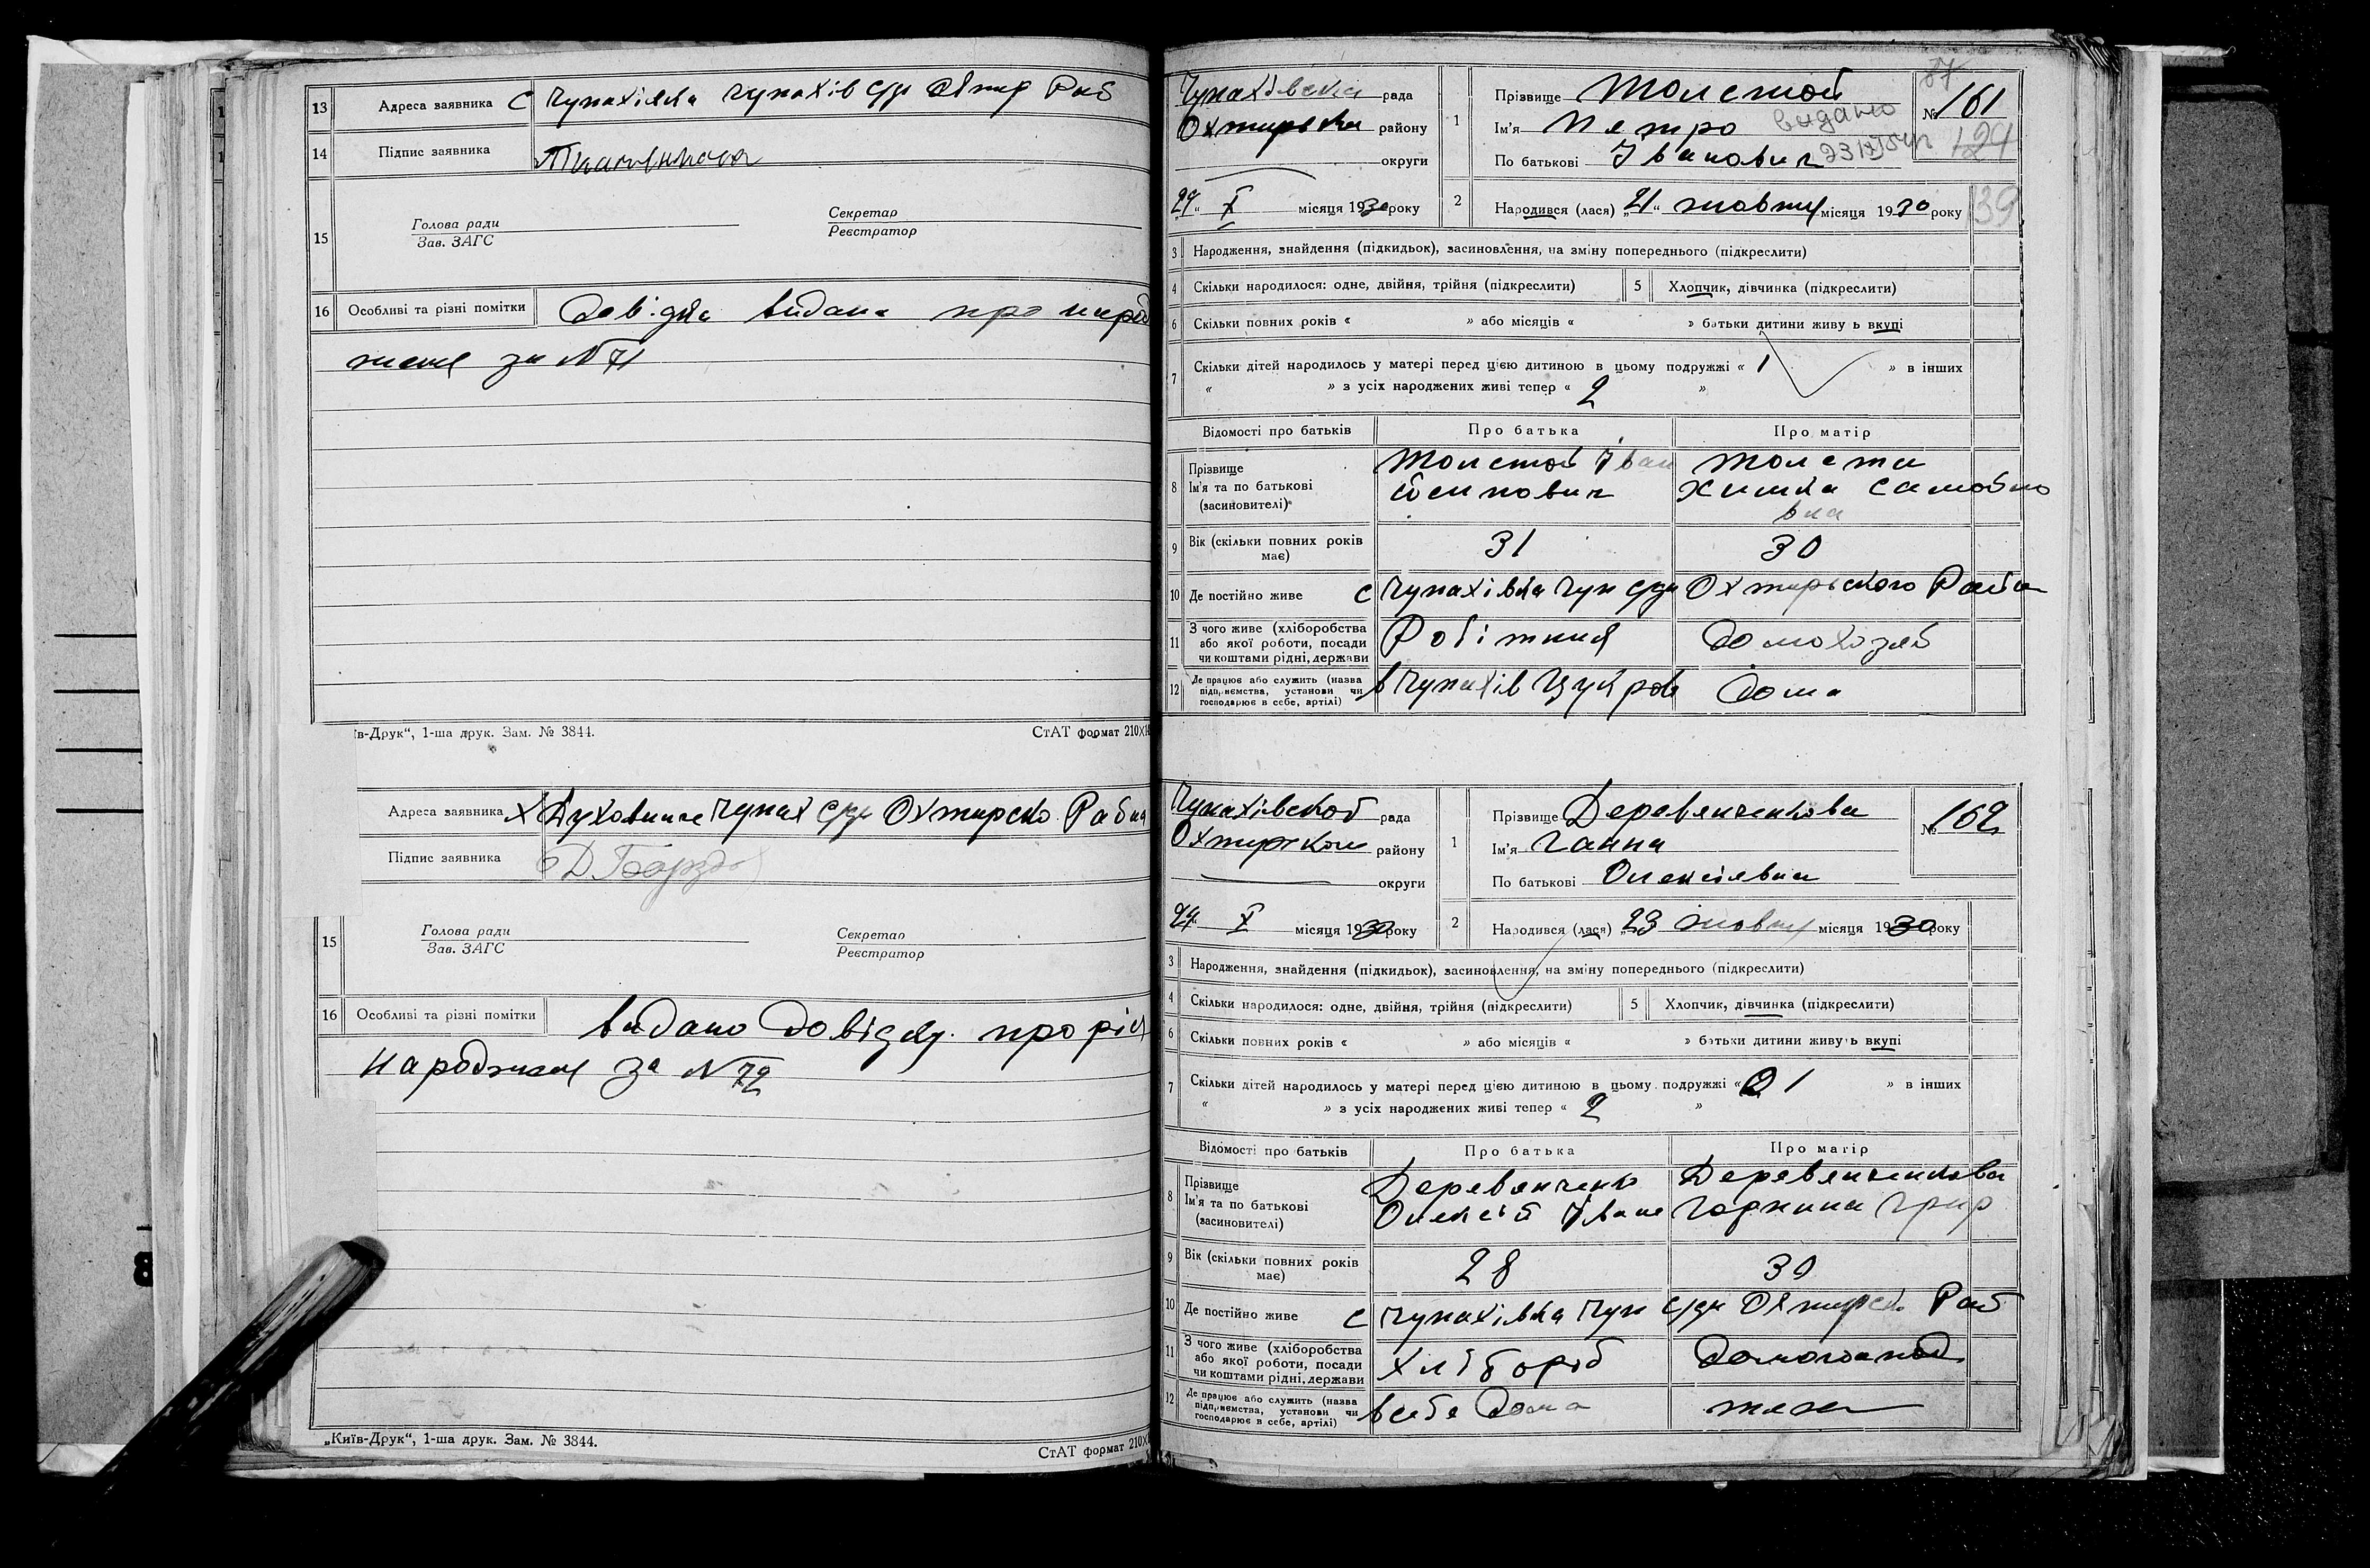 13 Адреса заявника с Чупахівка Чупахів с/ди Охтир Рай
14 Підпис заявника
15 Голова ради
Зав. ЗАГС
Секретар
Реєстратор
16 Особливі та різні помітки Довідка видана про народ
ження за N 71
їв-Друк“, 1-ша друк. Зам. № 3844.
СтАТ формат 210×
Адреса заявника х Духовниче Чупах с/ди Охтирско Району
Підпис заявника
15 Голова ради
Зав. ЗАГС
Секретар
Реєстратор
16 Особливі та різні помітки видано довідку про
народження за N 72
„Київ-Друк“, 1-ша друк. Зам. № 3844.
СтАТ формат 210×
Чупахівська рада
Охтирська району
округи
24 X місяця 1930 року
87
№ 161
124
39
1 Прізвище Толстой
Ім'я Петро
видано
По батькові Іванович
2 Народився (лася) „21“ жовтня місяця 1930 року
3 Народження, знайдення (підкидьок), засиновлення, на зміну попереднього (підкреслити)
4 Скільки народилося: одне, двійня, трійня (підкреслити) 5 Хлопчик, дівчинка (підкреслити)
6 Скільки повних років « » або місяців « » батьки дитини живу ь вкупі
7 Скільки дітей народилось у матері перед цією дитиною в цьому подружжі « 1 » в інших
« » з усіх народжених живі тепер « 2 »
Відомості про батьків Про батька Про матір
8 Прізвище Толстой Іван Толста
Ім'я та по батькові Осипович Химка Самойло
(засновителі) вна
9 Вік (скільки повних років має) 31 30
10 Де постійно живе с Чупахівка Чуп с/ди Охтирського Району
11 З чого живе (хліборобства
або якої роботи, посади
чи коштами рідні, держави Робітник Домохозяй
12 Де працює або служить (назва
підприємства, установи чи
господарює в себе, артілі) в Чупахів Цукров Дома
Чупахівской рада
Охтирском району
округи
24 X місяця 1930 року
№ 162
1 Прізвище Деревянченкова
Ім'я Ганна
По батькові Олексіївна
2 Народився (лася) „23 жовтня місяця 1930 року
3 Народження, знайдення (підкидьок), засиновлення, на зміну попереднього (підкреслити)
4 Скільки народилося: одне, двійня, трійня (підкреслити) 5 Хлопчик, дівчинка (підкреслити)
6 Скільки повних років « » або місяців « » батьки дитини живу ь вкупі
7 Скільки дітей народилось у матері перед цією дитиною в цьому подружжі « 1 » в інших
« » з усіх народжених живі тепер « 2 »
Відомості про батьків Про батька Про матір
8 Прізвище Деревянченко Деревянченкова
Ім'я та по батькові Олексій Іване Горпина Григ
(засиновителі)
9 Вік (скільки повних років має) 28 30
10 Де постійно живе с Чупахівка Чуп с/ди Охтирско Рай
11 З чого живе (хліборобства
або якої роботи, посади
чи коштами рідні, держави Хлібороб
12 Де працює або служить (назва
підприємства, установи чи
господарює в себе, артілі) в себе Дома теж